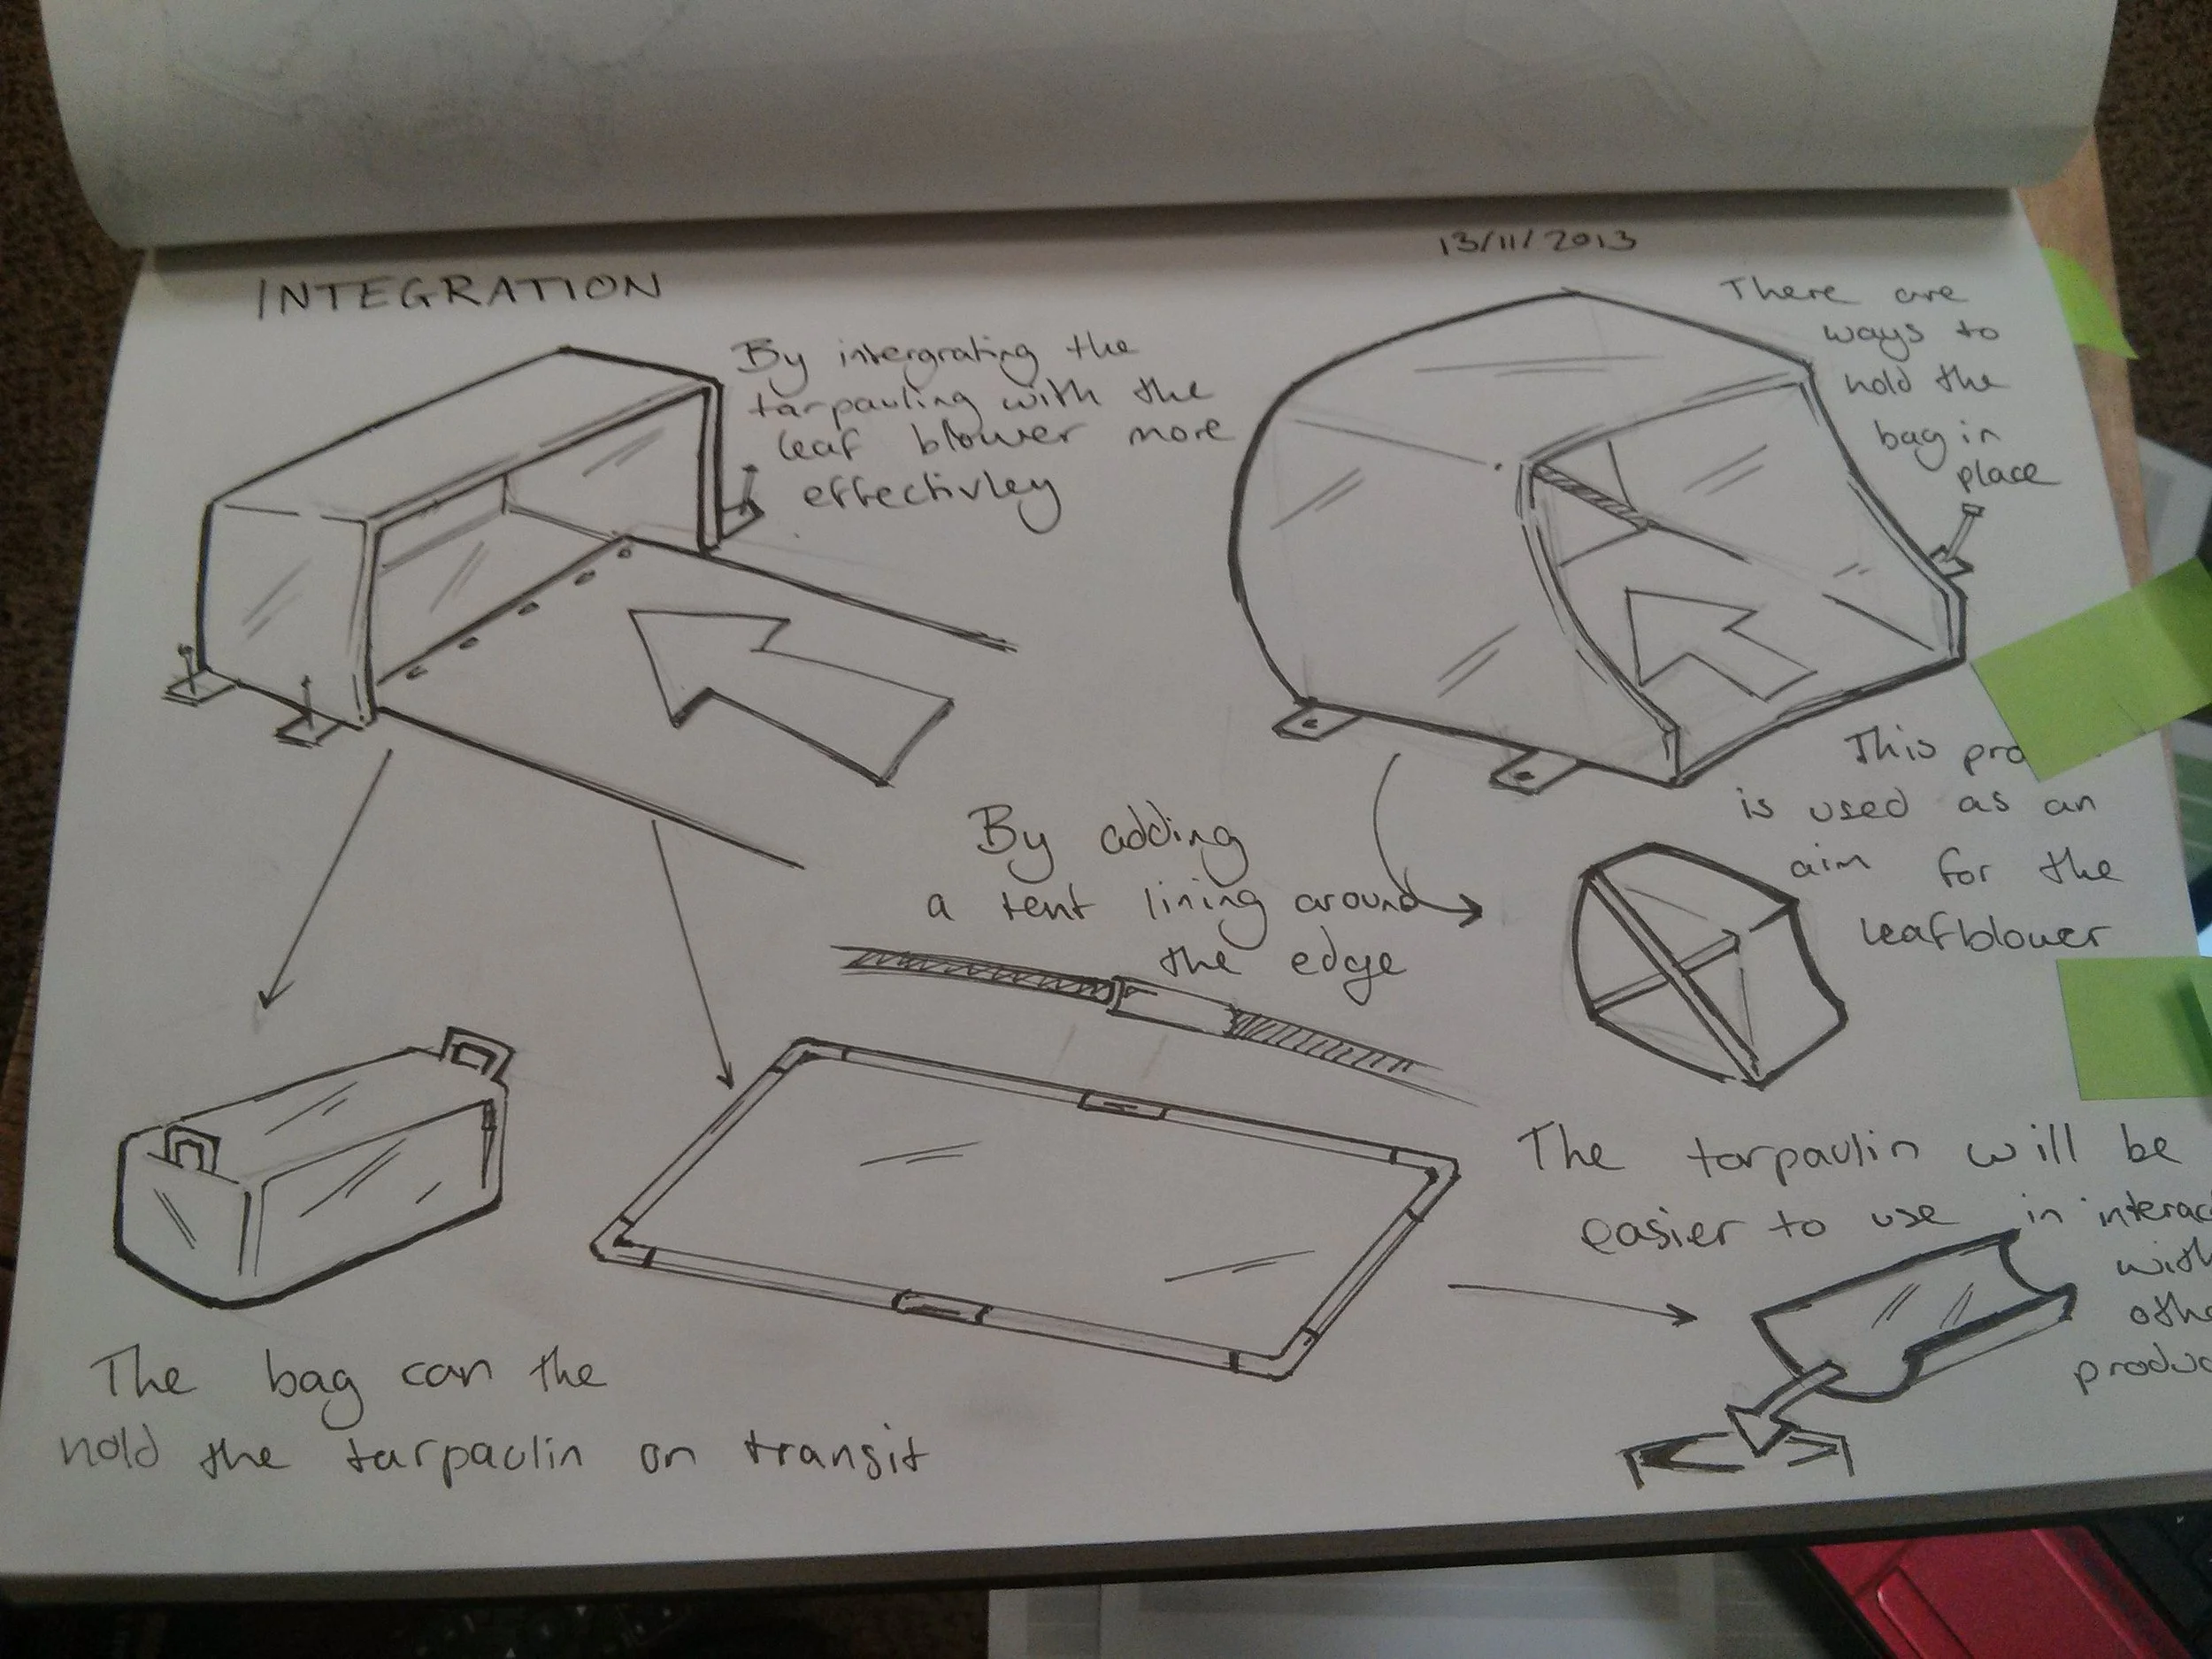 13/11/2013
INTEGRATION
By intergrating the
tarpauling with the
leaf blower more
effectivley
There are
ways to
hold the
bag in
place
This pro
is used as an
aim for the
leafblower
By adding
a tent lining around
the edge
The tarpaulin will be
easier to use in interac
with
othe
produc
The bag can the
hold the tarpaulin on transit